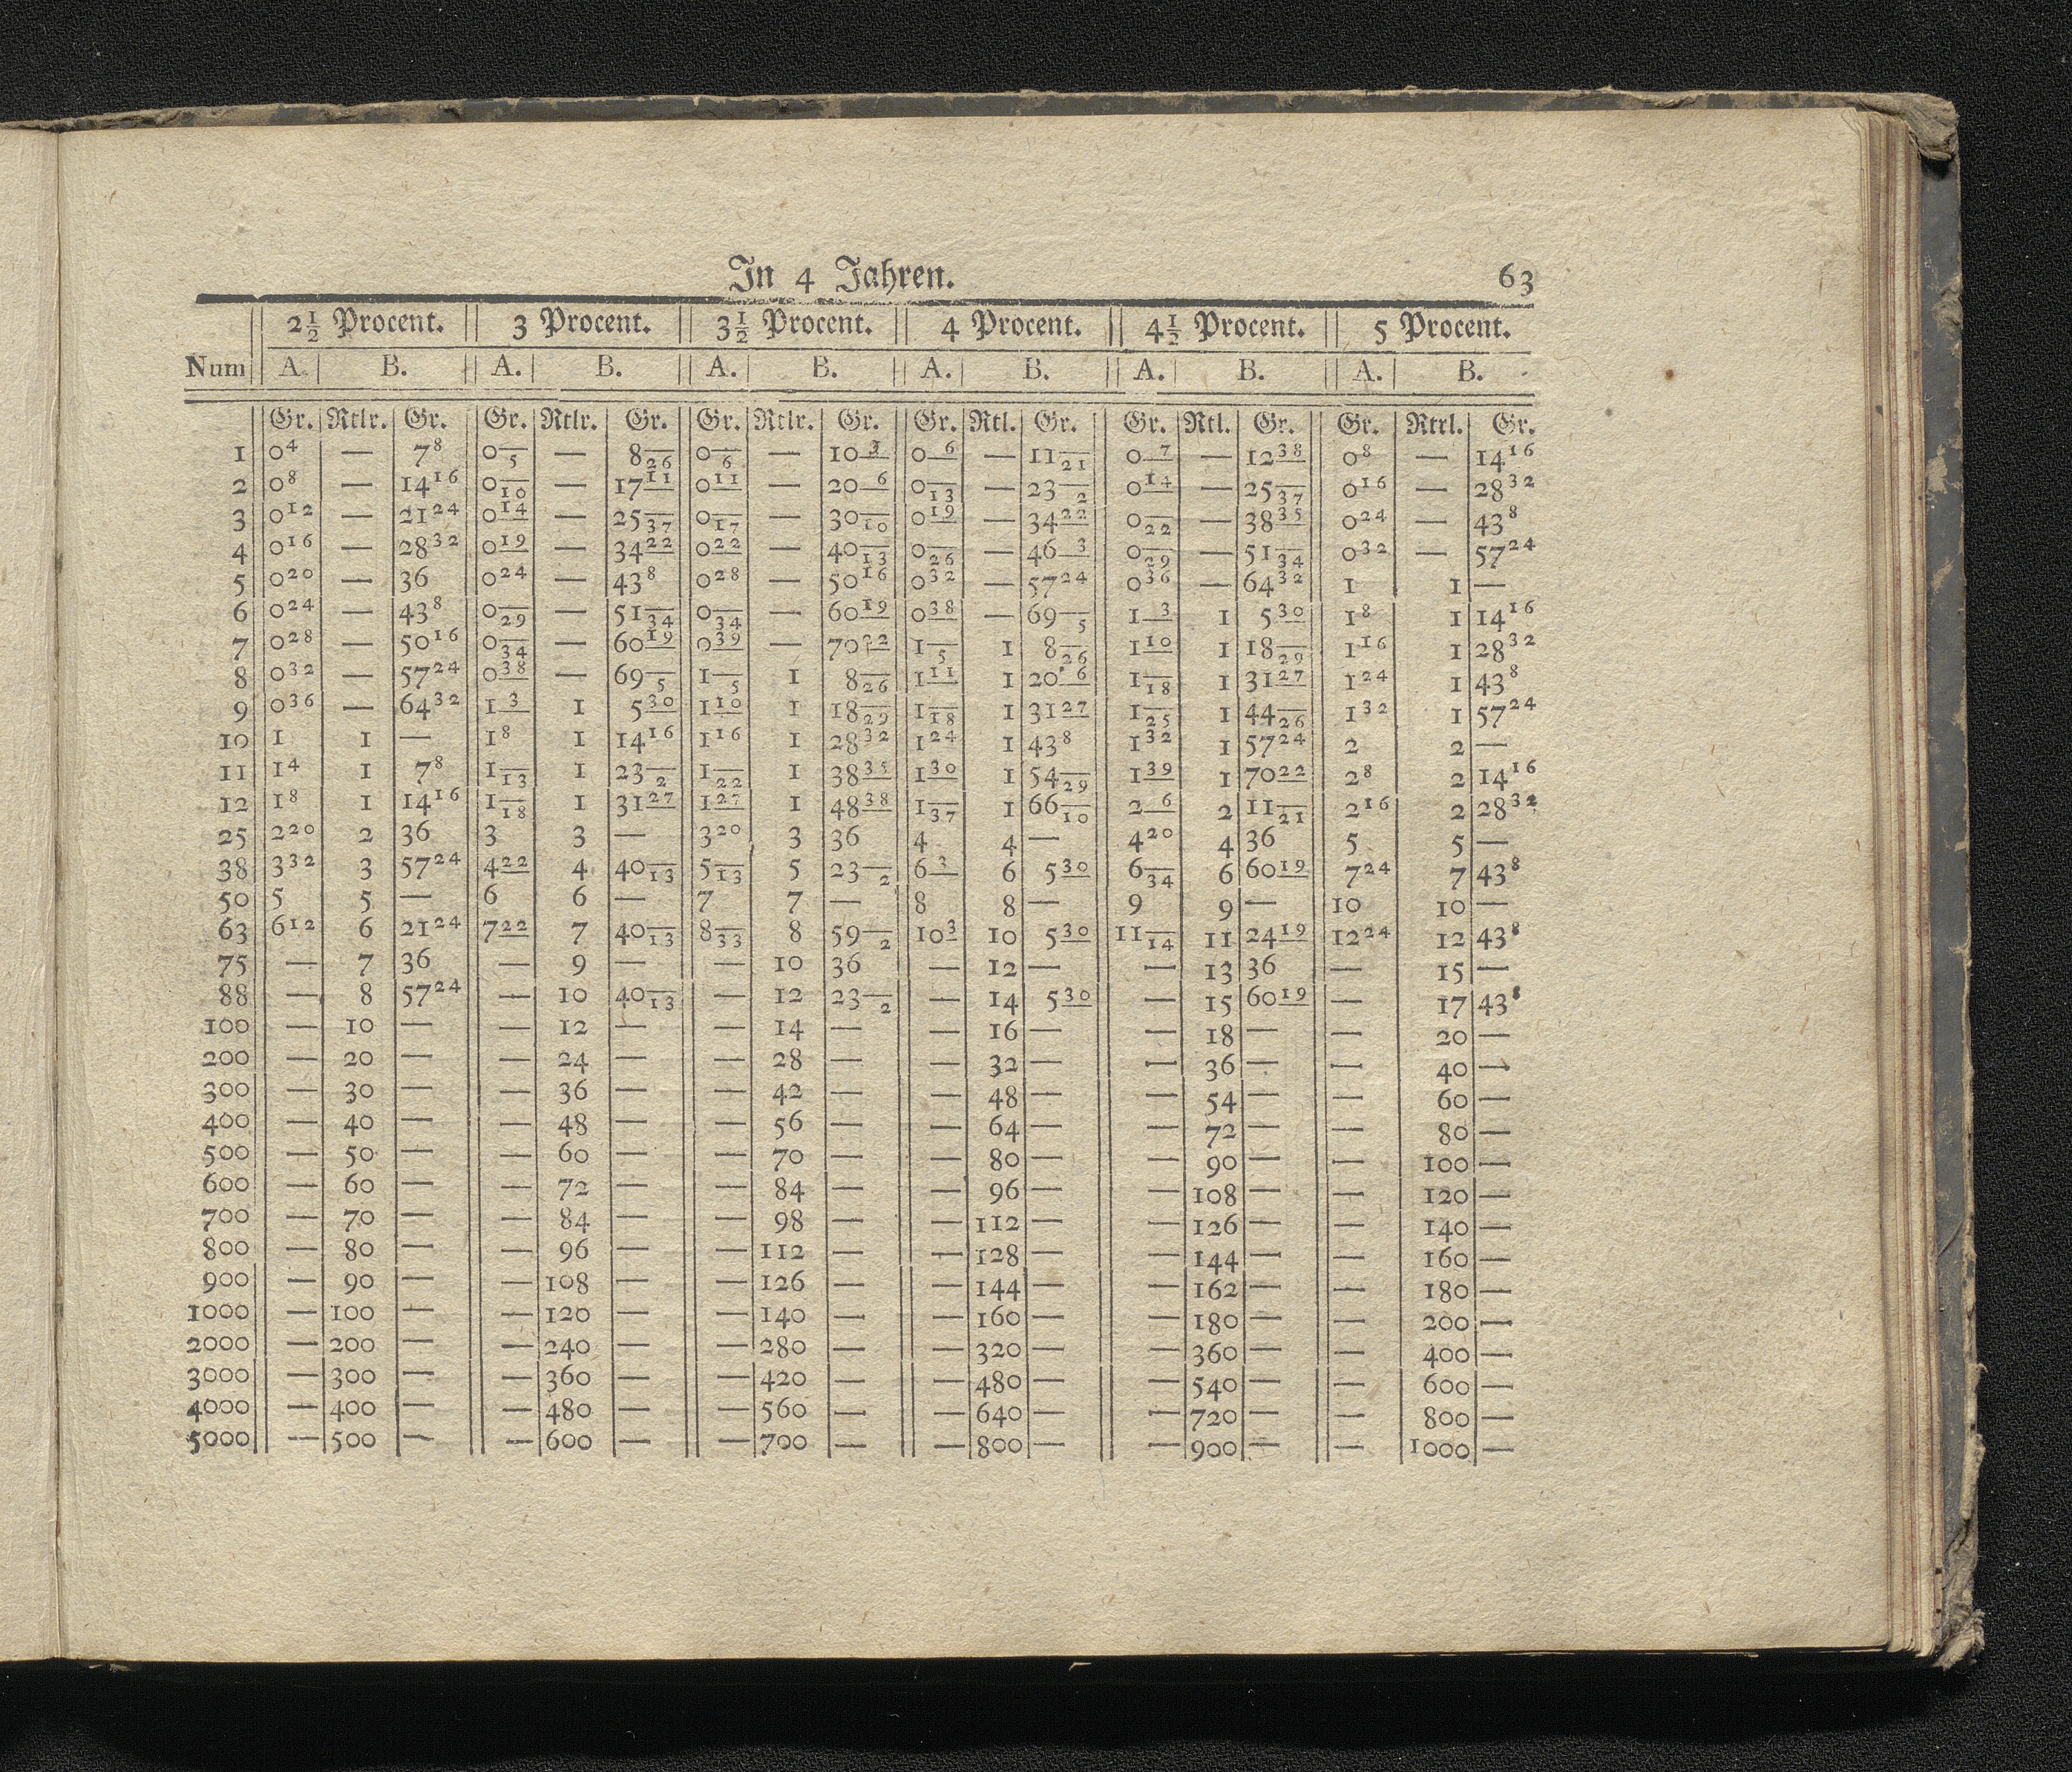 In 4 Jahren. 63
2½ Procent. 3 Procent. 3½ Procent. 4 Procent. 4½ Procent. 5 Procent.
Num A. B. A. B. A. B. A. B. A. B. A. B.
Gr. Rtlr. Gr. Gr. Rtlr. Gr. Gr. Rtlr. Gr. Gr. Rtl. Gr. Gr. Rtl. Gr. Gr. Rtrl. Gr.
1 0⁴ — 7⁸ 0₅ — 8₂₆ 0₆ — 10³ 0⁶ — 11₂₁ 0⁷ — 12³⁸ 0⁸ — 14¹⁶
2 0⁸ — 14¹⁶ 0₁₀ — 17¹¹ 0¹¹ — 20⁶ 0₁₃ — 23₂ 0¹⁴ — 25₃₇ 0¹⁶ — 28³²
3 0¹² — 21²⁴ 0¹⁴ — 25₃₇ 0₁₇ — 30₁₀ 0¹⁹ — 34²² 0₂₂ — 38³⁵ 0²⁴ — 43⁸
4 0¹⁶ — 28³² 0¹⁹ — 34²² 0²² — 40₁₃ 0₂₆ — 46³ 0₂₉ — 51₃₄ 0³² — 57²⁴
5 0²⁰ — 36 0²⁴ — 43⁸ 0²⁸ — 50¹⁶ 0³² — 57²⁴ 0³⁶ — 64³² 1 1 —
6 0²⁴ — 43⁸ 0₂₉ — 51₃₄ 0₃₄ — 60¹⁹ 0³⁸ — 69₅ 1³ 1 5³⁰ 1⁸ 1 14¹⁶
7 0²⁸ — 50¹⁶ 0₃₄ — 60¹⁹ 0³⁹ — 70²² 1₅ 1 8₂₆ 1¹⁰ 1 18₂₉ 1¹⁶ 1 28³²
8 0³² — 57²⁴ 0³⁸ — 69₅ 1₅ 1 8₂₆ 1¹¹ 1 20⁶ 1₁₈ 1 31²⁷ 1²⁴ 1 43⁸
9 0³⁶ — 64³² 1³ 1 5³⁰ 1¹⁰ 1 18₂₉ 1₁₈ 1 31²⁷ 1₂₅ 1 44₂₆ 1³² 1 57²⁴
10 1 1 — 1⁸ 1 14¹⁶ 1¹⁶ 1 28³² 1²⁴ 1 43⁸ 1³² 1 57²⁴ 2 2 —
11 1⁴ 1 7⁸ 1₁₃ 1 23₂ 1₂₂ 1 38³⁵ 1³⁰ 1 54₂₉ 1³⁹ 1 70²² 2⁸ 2 14¹⁶
12 1⁸ 1 14¹⁶ 1₁₈ 1 31²⁷ 1²⁷ 1 48³⁸ 1₃₇ 1 66₁₀ 2⁶ 2 11₂₁ 2¹⁶ 2 28³²
25 2²⁰ 2 36 3 3 — 3²⁰ 3 36 4 4 — 4²⁰ 4 36 5 5 —
38 3³² 3 57²⁴ 4²² 4 40₁₃ 5₁₃ 5 23₂ 6³ 6 5³⁰ 6₃₄ 6 60¹⁹ 7²⁴ 7 43⁸
50 5 5 — 6 6 — 7 7 — 8 8 — 9 9 — 10 10 —
63 6¹² 6 21²⁴ 7²² 7 40₁₃ 8₃₃ 8 59₂ 10³ 10 5³⁰ 11₁₄ 11 24¹⁹ 12²⁴ 12 43⁸
75 — 7 36 — 9 — — 10 36 — 12 — — 13 36 — 15 —
88 — 8 57²⁴ — 10 40₁₃ — 12 23₂ — 14 5³⁰ — 15 60¹⁹ — 17 43⁸
100 — 10 — — 12 — — 14 — — 16 — — 18 — — 20 —
200 — 20 — — 24 — — 28 — — 32 — — 36 — — 40 —
300 — 30 — — 36 — — 42 — — 48 — — 54 — — 60 —
400 — 40 — — 48 — — 56 — — 64 — — 72 — — 80 —
500 — 50 — — 60 — — 70 — — 80 — — 90 — — 100 —
600 — 60 — — 72 — — 84 — — 96 — — 108 — — 120 —
700 — 70 — — 84 — — 98 — — 112 — — 126 — — 140 —
800 — 80 — — 96 — — 112 — — 128 — — 144 — — 160 —
900 — 90 — — 108 — — 126 — — 144 — — 162 — — 180 —
1000 — 100 — — 120 — — 140 — — 160 — — 180 — — 200 —
2000 — 200 — — 240 — — 280 — — 320 — — 360 — — 400 —
3000 — 300 — — 360 — — 420 — — 480 — — 540 — — 600 —
4000 — 400 — — 480 — — 560 — — 640 — — 720 — — 800 —
5000 — 500 — — 600 — — 700 — — 800 — — 900 — — 1000 —